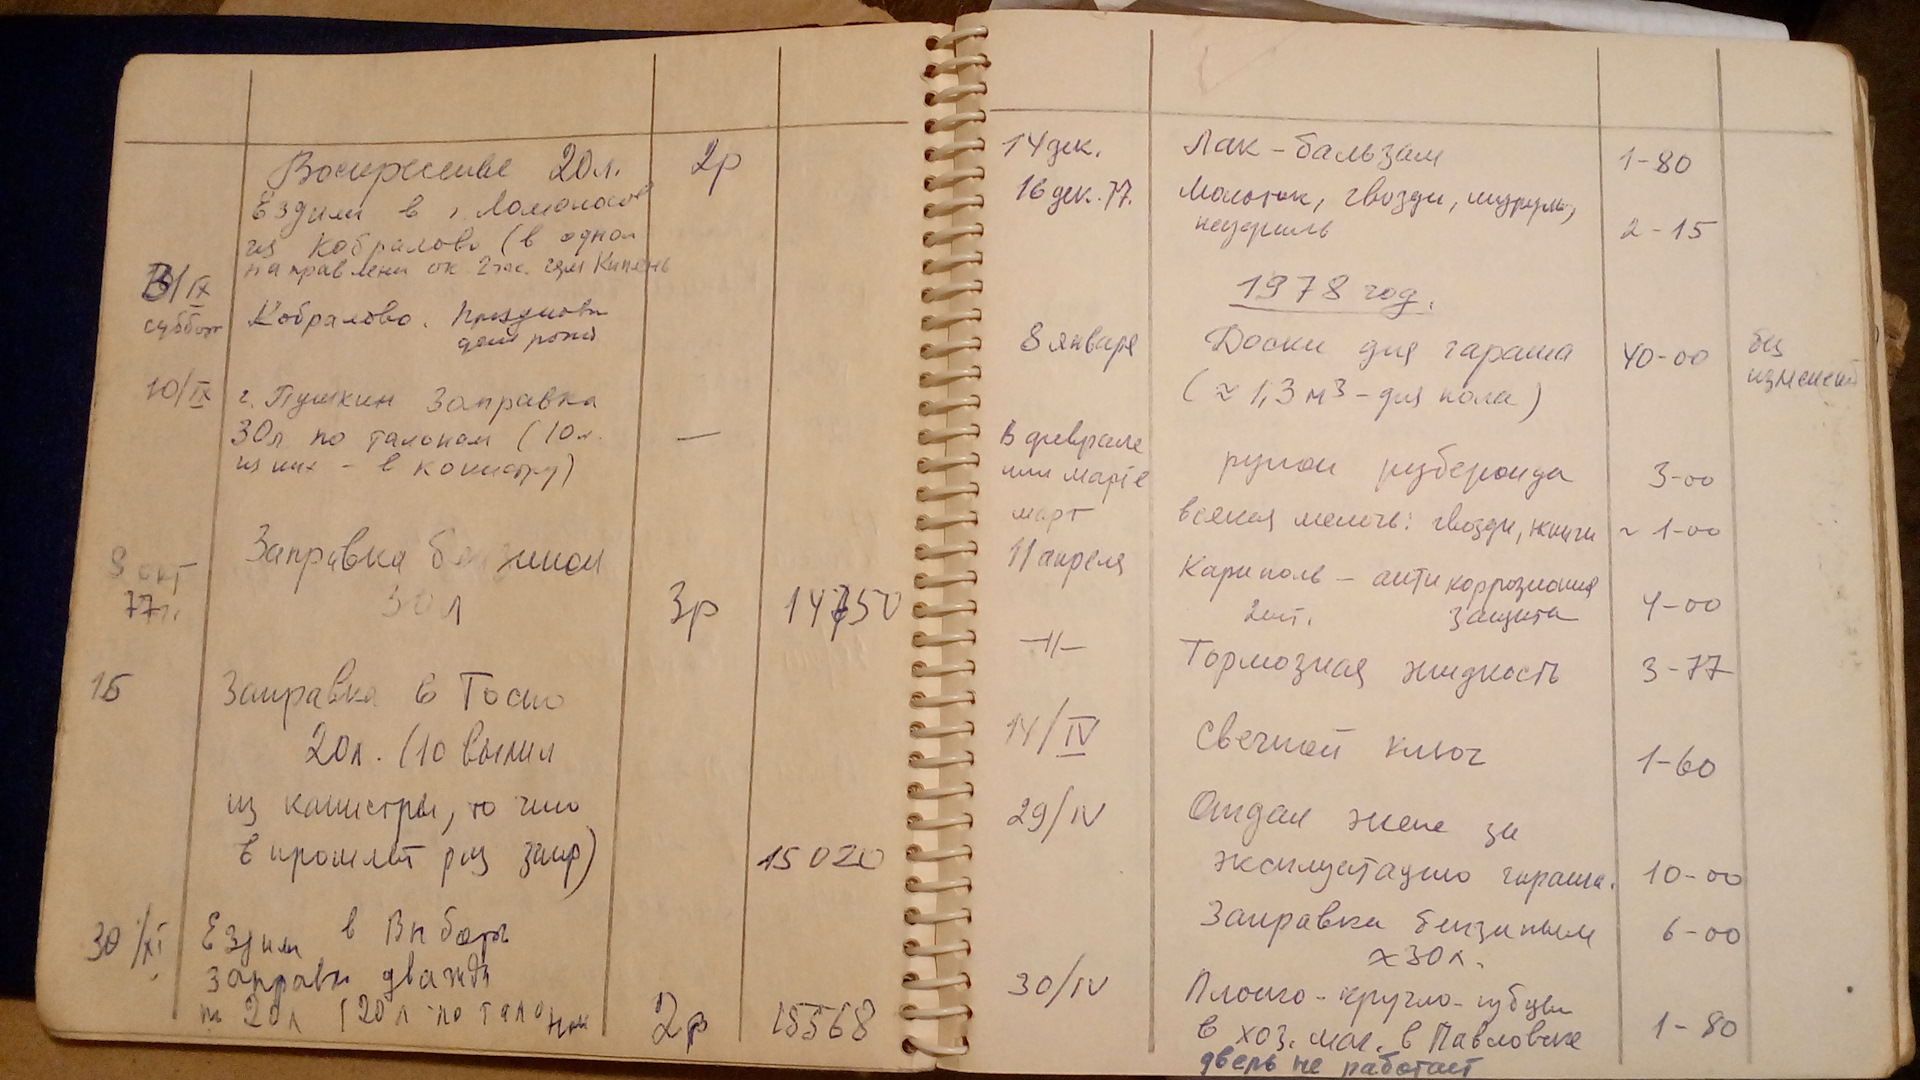 Воскресенье 20л. 2р
Ездили в г. Ломоносов
из Кобралово (в одном
направлени ок. 2 час. чрез Кипень
/IX
суббот Кобралово. Празднова
дни рожд
10/IX г. Пушкин Заправка
30л по талонам (10л. —
из них - в канистру)
8 окт Заправка бензином
77г. 30л 3р 14750
15 Заправка в Тосно
20л. (10 вылил
из канистры, то что
в прошлый раз запр) 15020
30/XI Ездили в Выборг
заправк дважды
по 20л (20л по талонам 2р 15568
14 дек. Лак-бальзам 1-80
16 дек. 77. Молоток, гвозди, шурупы,
2-15
1978 год.
8 января Доски для гаража 40-00 без
(≈ 1,3 м3 - для пола) изменений
В феврале
или марте рулон рубероида 3-00
март всякая мелочь: гвозди, ~ 1-00
11 апреля Кариполь - антикоррозионная
2шт. защита 4-00
-11- Тормозная жидкость 3-77
14/IV Свечной ключ 1-60
29/IV Отдал жене за
эксплуатацию гаража. 10-00
Заправка бензиным 6-00
≈30л.
30/IV Плоско-кругло-губцы
в хоз. маг. в Павловске 1-80
дверь не работает